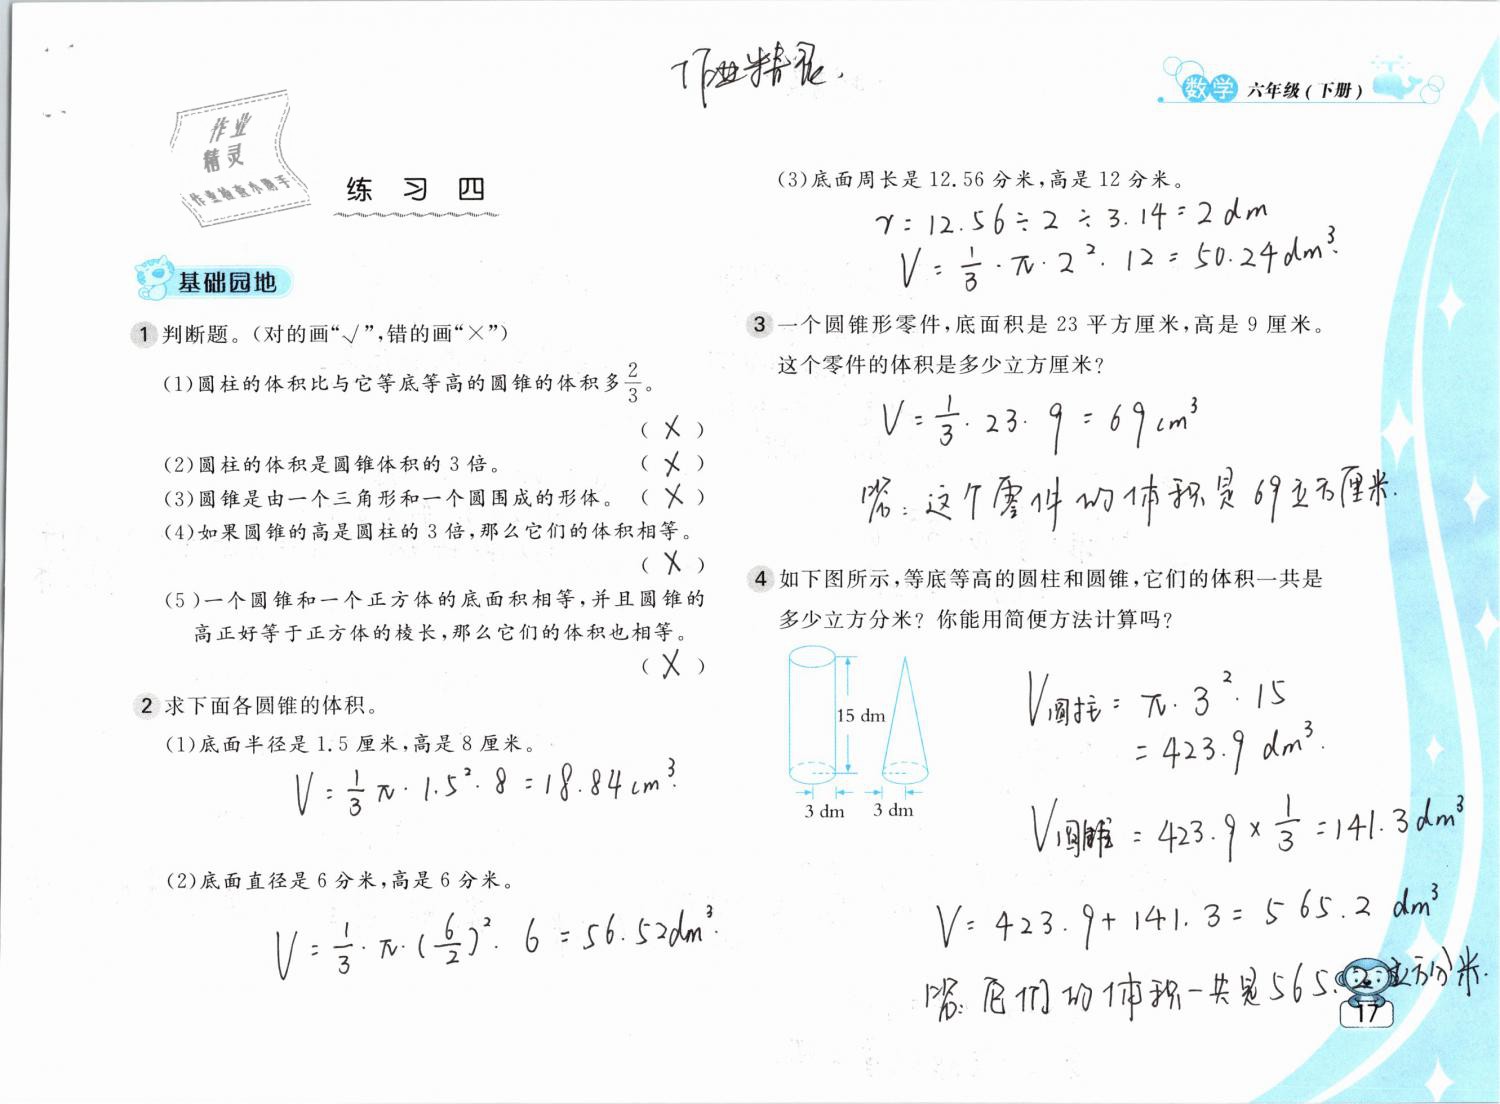 作业精灵.
数学 六年级(下册)
作业
精灵
作业检查小助手
练 习 四
基础园地
1 判断题。(对的画“√”,错的画“×”)
(1)圆柱的体积比与它等底等高的圆锥的体积多2/3。
( X )
(2)圆柱的体积是圆锥体积的 3 倍。 ( X )
(3)圆锥是由一个三角形和一个圆围成的形体。 ( X )
(4)如果圆锥的高是圆柱的 3 倍,那么它们的体积相等。
( X )
(5)一个圆锥和一个正方体的底面积相等,并且圆锥的
高正好等于正方体的棱长,那么它们的体积也相等。
( X )
2 求下面各圆锥的体积。
(1)底面半径是 1.5 厘米,高是 8 厘米。
V = 1/3 π · 1.5² · 8 = 18.84 cm³.
(2)底面直径是 6 分米,高是 6 分米。
V = 1/3 · π · (6/2)² · 6 = 56.52dm³.
(3)底面周长是 12.56 分米,高是 12 分米。
r = 12.56 ÷ 2 ÷ 3.14 = 2 dm
V = 1/3 · π · 2² · 12 = 50.24dm³.
3 一个圆锥形零件,底面积是 23 平方厘米,高是 9 厘米。
这个零件的体积是多少立方厘米?
V = 1/3 · 23 · 9 = 69 cm³
答: 这个零件的体积是69立方厘米.
4 如下图所示,等底等高的圆柱和圆锥,它们的体积一共是
多少立方分米? 你能用简便方法计算吗?
15 dm
3 dm 3 dm
V圆柱 = π · 3² · 15
= 423.9 dm³.
V圆锥 = 423.9 × 1/3 = 141.3dm³
V = 423.9 + 141.3 = 565.2 dm³
答: 它们的体积一共是565.2立方分米.
17